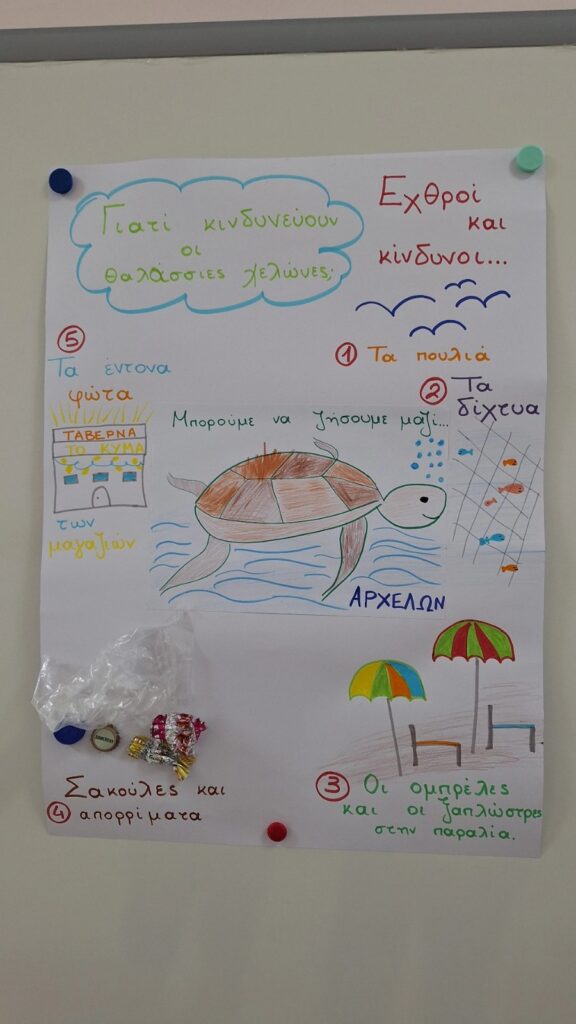 Γιατί κινδυνεύουν
οι
θαλάσσιες χελώνες;
Εχθροί
και
κίνδυνοι...
① Τα πουλιά
② Τα
δίχτυα
③ Οι ομπρέλες
και οι ξαπλώστρες
στην παραλία.
Σακούλες και
④ απορρίματα
⑤
Τα έντονα
φώτα
ΤΑΒΕΡΝΑ
ΤΟ ΚΥΜΑ
των
μαγαζιών
Μπορούμε να ζήσουμε μαζί...
ΑΡΧΕΛΩΝ